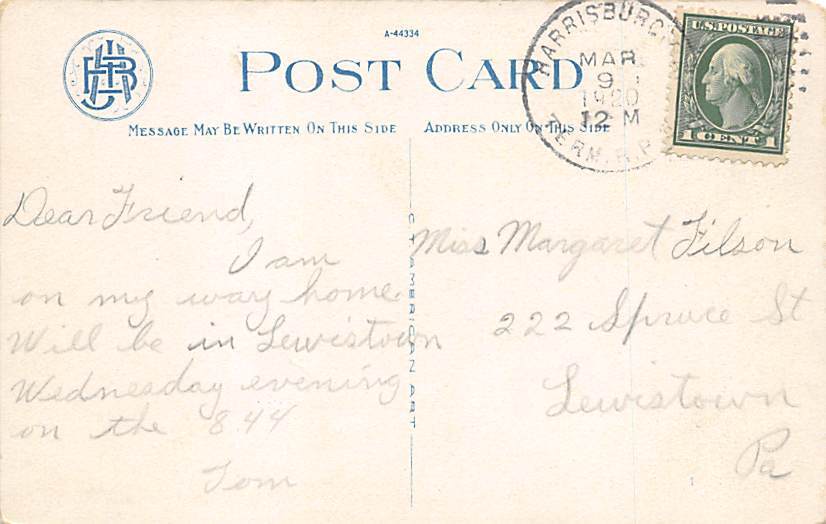 A-44334
POST CARD
MESSAGE MAY BE WRITTEN ON THIS SIDE
ADDRESS ONLY ON THIS SIDE
HARRISBURG
MAR
9
1920
12 M
TERM. R.P.
U.S. POSTAGE
1 CENT 1
Dear Friend,
I am
on my way home.
Will be in Lewistown
Wednesday evening
on the 8.44
Tom
C.T. AMERICAN ART
Miss Margaret Filson
222 Spruce St
Lewistown
Pa